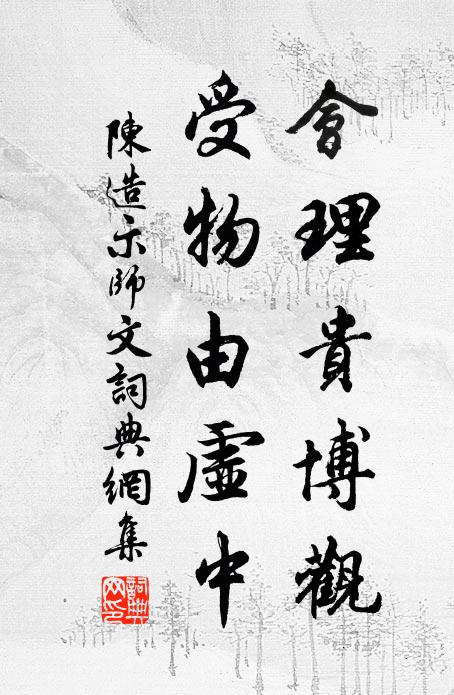 會理貴博觀
受物由虛中
陳造示師文詞典網集
詞典網印